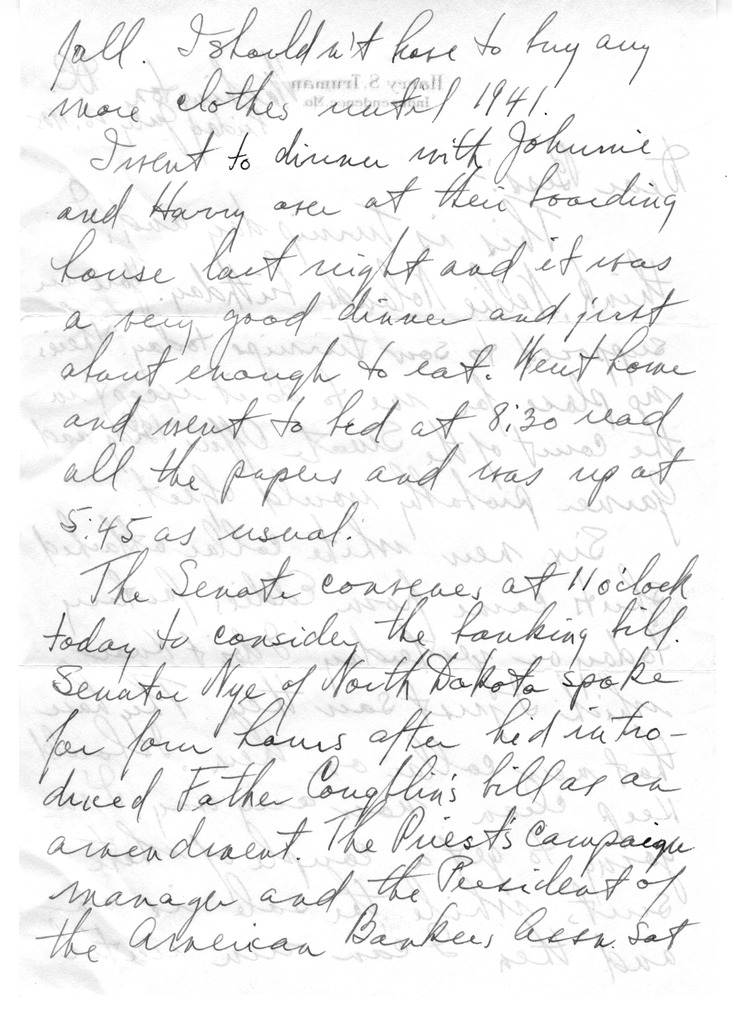 fall. I shouldn't have to buy any
more clothes until 1941.
I went to dinner with Johnnie
and Harry over at their boarding
house last night and it was
a very good dinner and just
about enough to eat. Went home
and went to bed at 8:30 read
all the papers and was up at
5:45 as usual.
The Senate convenes at 11 o'clock
today to consider the banking bill.
Senator Nye of North Dakota spoke
for four hours after he'd intro-
duced Father Coughlin's bill as an
amendment. The Priest's Campaign
manager and the President of
the American Bankers Assn. sat
Harry S. Truman
Independence, Mo.